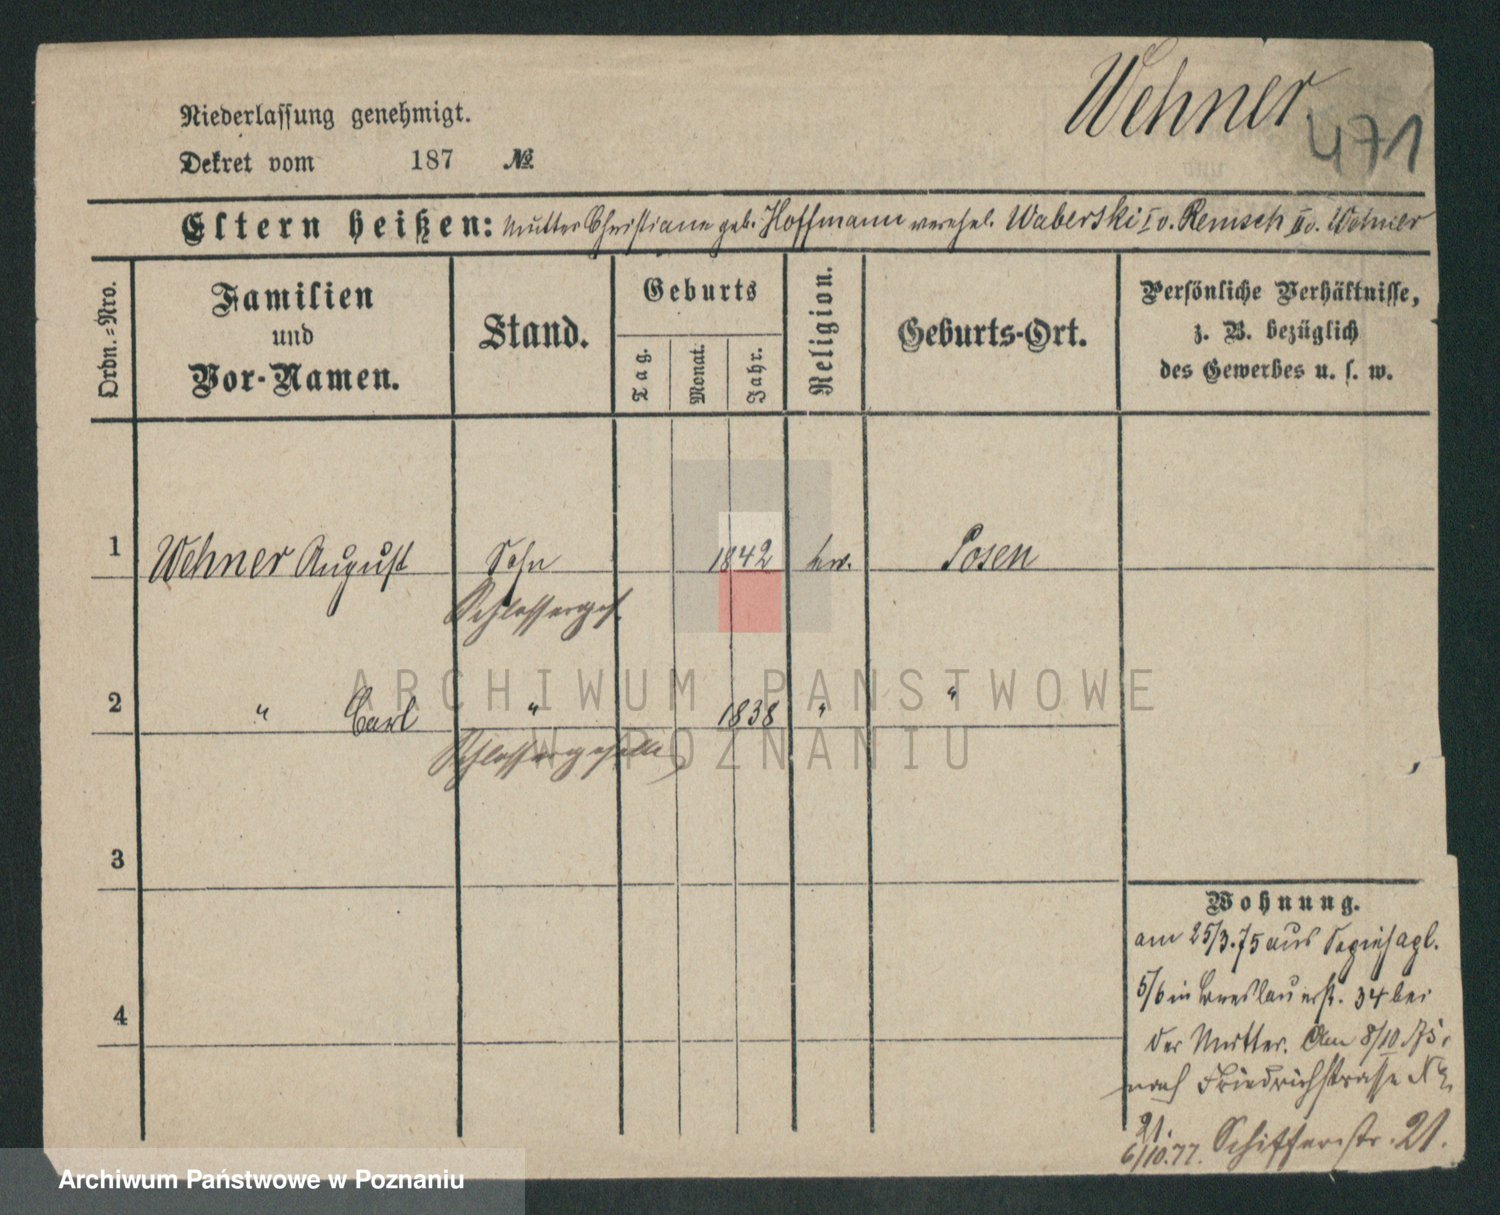 Wehner
471
Niederlassung genehmigt.
Dekret vom 187 №
Eltern heißen: Mutter Christiane geb. Hoffmann verehel. Waberski I v. Remsch II v. Wehner
Ordn.-Nro.
Familien
und
Vor-Namen.
Stand.
Geburts
Tag.
Monat.
Jahr.
Religion.
Geburts-Ort.
Persönliche Verhältnisse,
z. B. bezüglich
des Gewerbes u. s. w.
1 Wehner August Sohn 1842 ev. Posen
Schlosserges.
2 " Carl " 1838 " "
Schlossergeselle
3
4
Wohnung.
am 25/3.75 aus
5/6 in Breslauerst. 34 bei
der Mutter. Am 8/10 75.
nach Friedrichstrasse No
21.
6/10.77. Schifferstr. 21.
ARCHIWUM PAŃSTWOWE
W POZNANIU
Archiwum Państwowe w Poznaniu